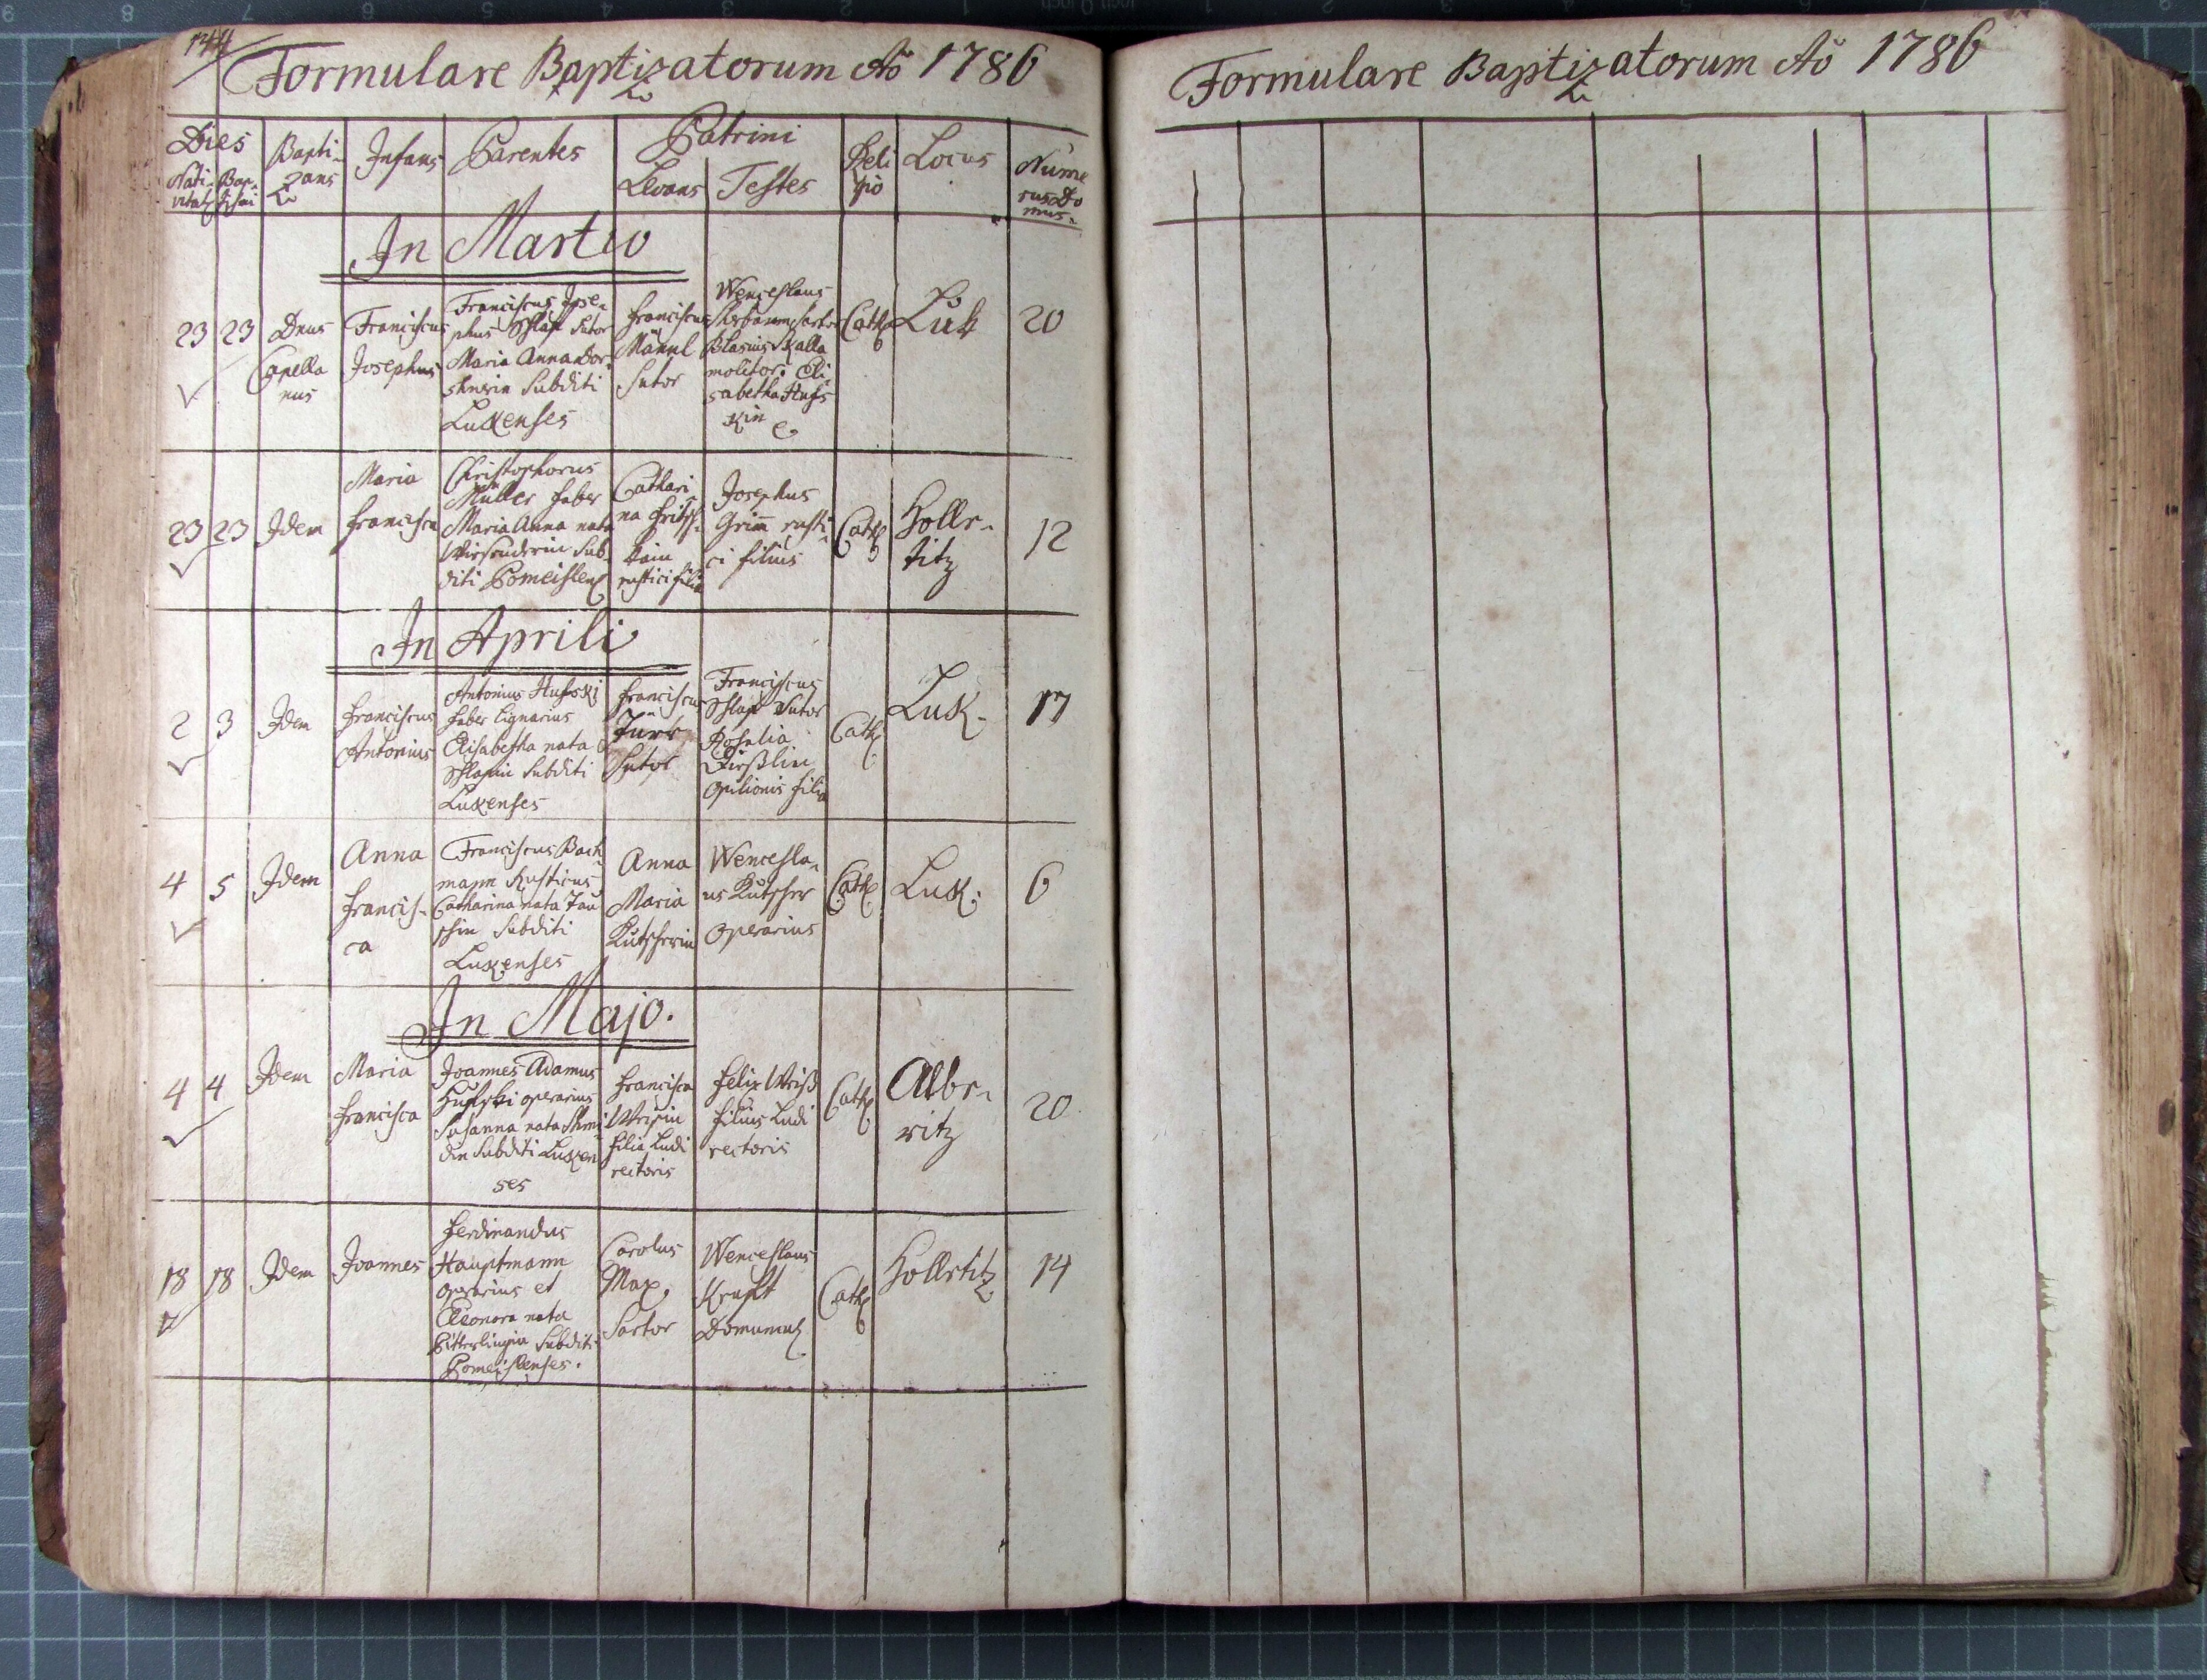 144
Formulare Baptizatorum Aõ 1786
Dies
Nati- Bap-
Bapti-
zans
Infans
Parentes
Patrini
Levans
Testes
Reli
gio
Locus
Nume
rus Do
mus.
In Martio
23
23
Dnus
Capella
nus
Franciscus
Josephus
Franciscus Jose-
phus Schlapf Sutor
Maria Anna
Subditi
Lukenses
Franciscus
Männl
Sutor
Wenceslaus
Sartor
Blasius Skalla
molitor. Eli
sabetha Hufs
kin
Cath
Luk
20
23
23
Idem
Maria
Francisca
Christophorus
Müller Faber
Maria Anna nata
Sub-
diti
Cathari-
na Fritsch-
kain
rustici filia
Josephus
Grim̃ rusti-
ci filius
Cath
Holle-
titz
12
In Aprili
2
3
Idem
Franciscus
Antonius
Antonius Hufski
Faber Lignarius
Elisabetha nata
Subditi
Lukenses
Franciscus
Türk
Sutor
Franciscus
Sutor
Rosalia
Opilionis filia
Cath
Luk.
17
4
5
Idem
Anna
Francis-
ca
Franciscus Bach
mann Rusticus
Catharina nata Tau
schin Subditi
Lukenses
Anna
Maria
Kutscherin
Wencesla-
us Kutscher
Operarius
Cath
Luk.
6
In Majo.
4
4
Idem
Maria
Francisca
Joannes Adamus
Hufski operarius
Susanna nata
din Subditi Luken
ses
Francisca
filia Ludi
rectoris
Felix
filius Ludi
rectoris
Cath
Albe-
ritz
20
18
18
Idem
Joannes
Ferdinandus
Hauptmann
operarius et
Eleonora nata
Bitterlingin Subditi
Pomeislenses.
Carolus
Max,
Sartor
Wenceslaus
Kraft
Cath
Holletitz
14
Formulare Baptizatorum Aõ 1786